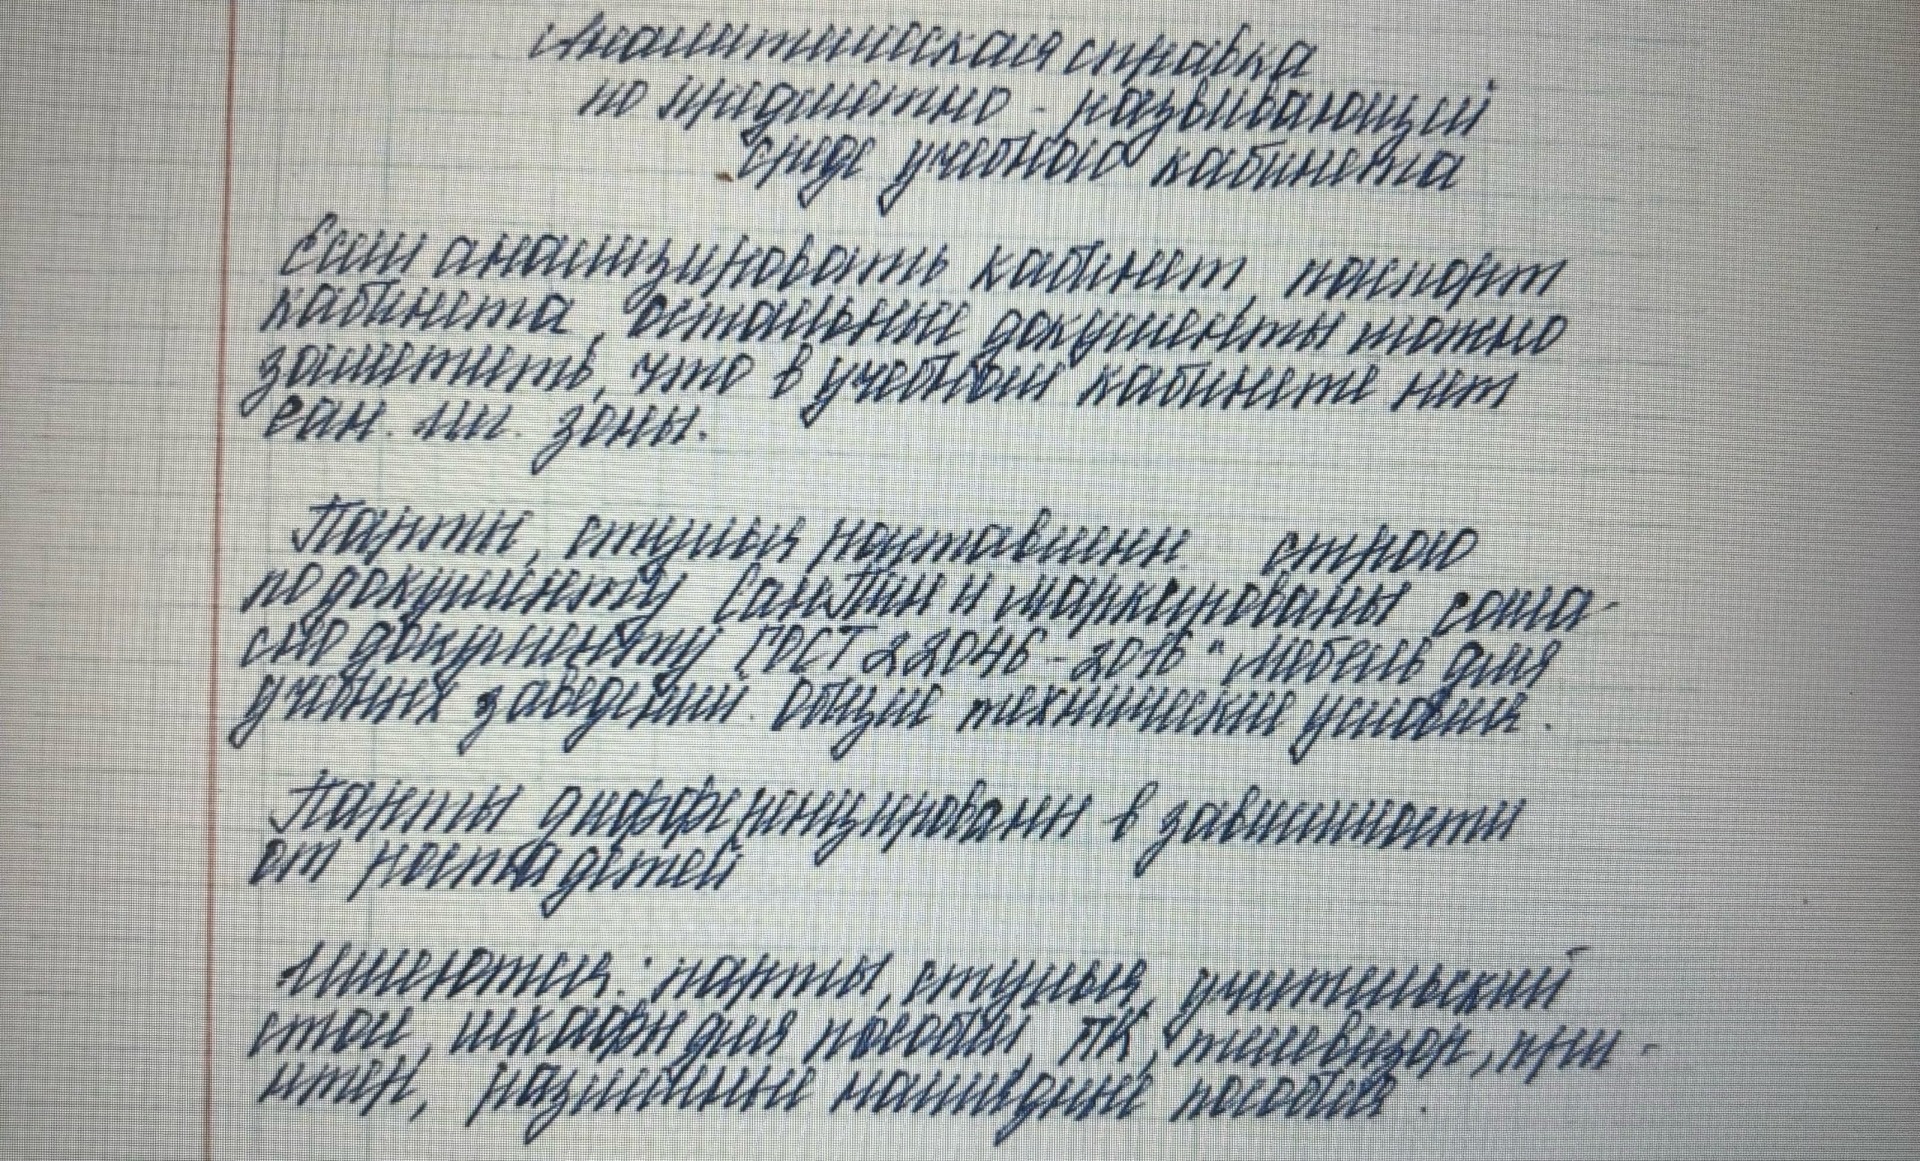 Аналитическая справка
по предметно - развивающей
среде учебного кабинета
Если анализировать кабинет, паспорт
кабинета, остальные документы можно
заметить, что в учебном кабинете нет
сан. зоны.
Парты, стулья расставлены строго
по документу СанПин и маркированы согла-
сно документу ГОСТ 22046-2016 "Мебель для
учебных заведений. Общие технические условия.
Парты дифференцированы в зависимости
от роста детей
Имеются: парты, стулья, учительский
стол, шкафы для пособий, ПК, телевизор, при-
нтер, различные наглядные пособия.